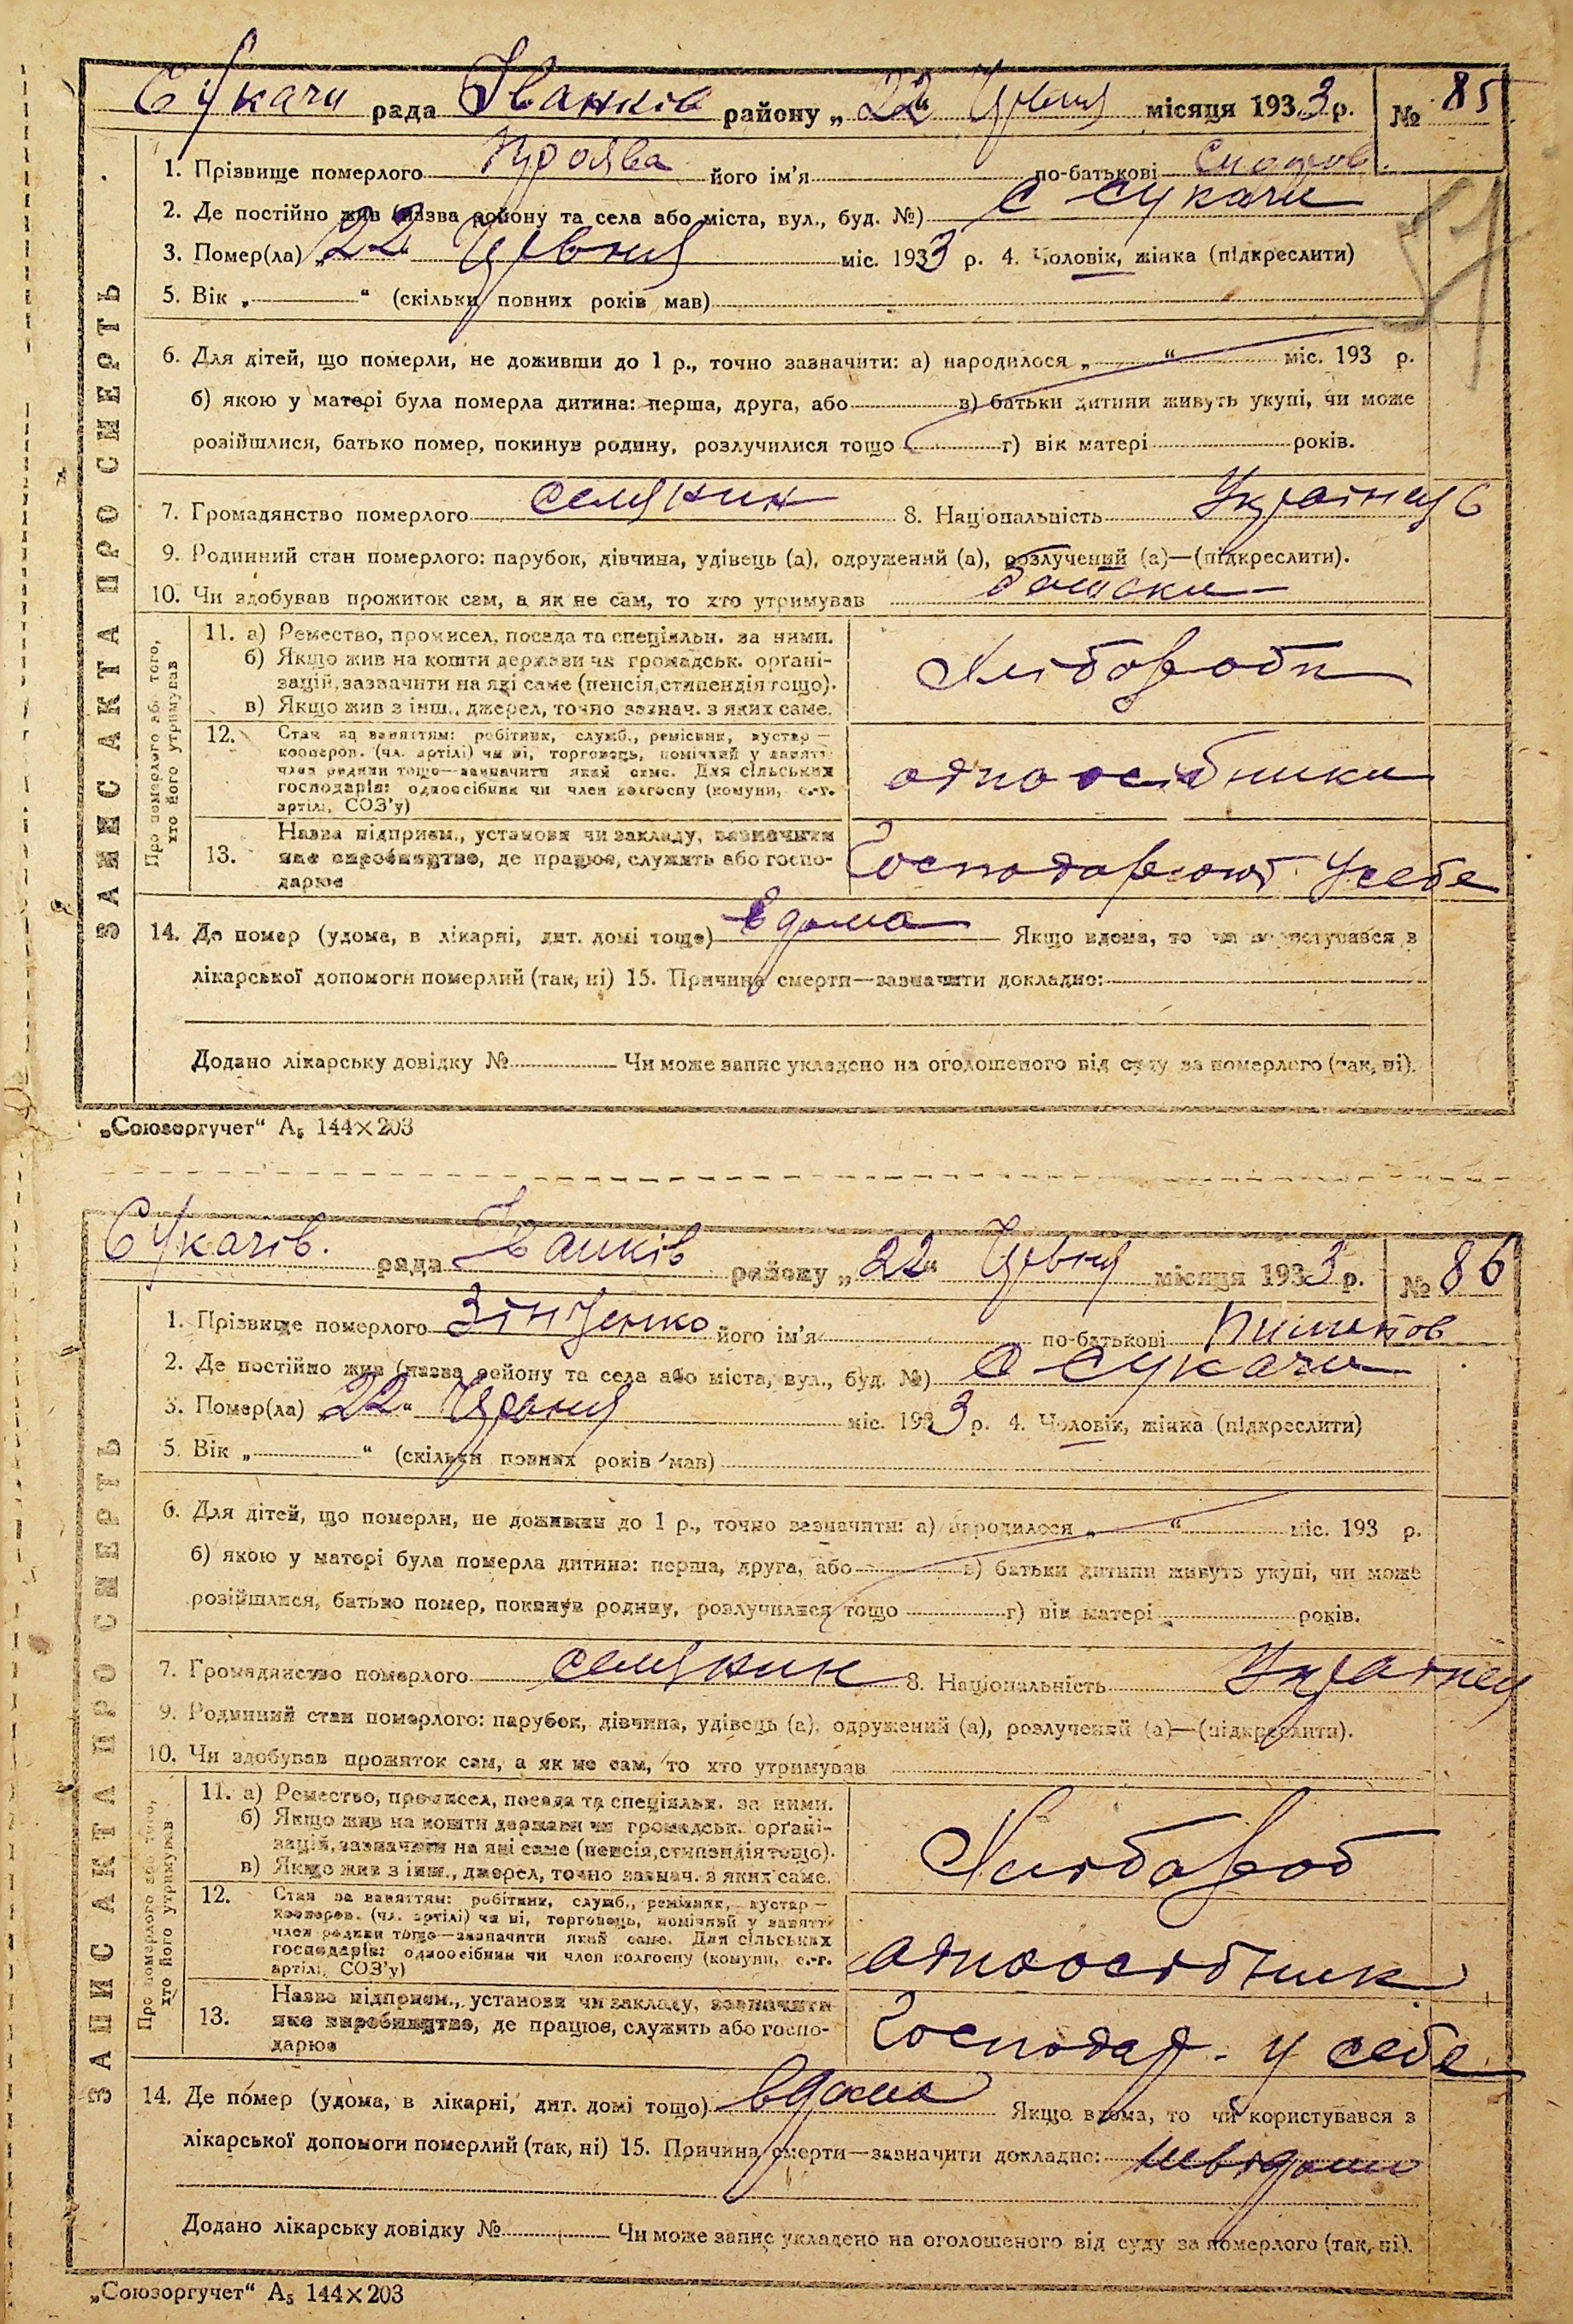 Сукачи рада Іванків району „22" Червня місяця 1933 р. № 85
1. Прізвище померлого його ім'я по-батькові
2. Де постійно жив (назва району та села або міста, вул., буд. №) с Сукачи
3. Помер(ла) „22" Червня міс. 1933 р. 4. Чоловік, жінка (підкреслити)
5. Вік „ " (скільки повних років мав)
6. Для дітей, що померли, не доживши до 1 р., точно зазначити: а) народилося „ " міс. 193 р.
б) якою у матері була померла дитина: перша, друга, або в) батьки дитини живуть укупі, чи може
розійшлися, батько помер, покинув родину, розлучилися тощо г) вік матері років.
7. Громадянство померлого селянин 8. Національність Українець
9. Родинний стан померлого: парубок, дівчина, удівець (а), одружений (а), розлучений (а)—(підкреслити).
10. Чи здобував прожиток сам, а як не сам, то хто утримував батьки
ЗАПИС АКТА ПРО СМЕРТЬ
Про померлого або того,
хто його утримував
11. а) Ремество, промисел, посада та спеціяльн. за ними.
б) Якщо жив на кошти держави чи громадськ. орґані-
зацій, зазначити на які саме (пенсія, стипендія тощо).
в) Якщо жив з інш., джерел, точно зазнач. з яких саме.
Хлібороби
12. Стан за заняттям: робітник, служб., ремісник, кустар—
кооперов. (чл. артілі) чи ні, торговець, помічний у занятті
член родини тощо—зазначити який саме. Для сільських
господарів: одноосібник чи член колгоспу (комуни, с.-г.
артілі, СОЗ'у)
одноосібники
13. Назва підприєм., установи чи закладу, зазначити
яке виробництво, де працює, служить або госпо-
дарює
Господарюют у себе
14. Де помер (удома, в лікарні, дит. домі тощо) вдома Якщо вдома, то чи користувався з
лікарської допомоги померлий (так, ні) 15. Причина смерти—зазначити докладно:
Додано лікарську довідку № Чи може запис укладено на оголошеного від суду за померлого (так, ні).
„Союзоргучет" А5 144×203
Сукачів. рада Іванків району „22" Червня місяця 1933 р. № 86
1. Прізвище померлого Зінченко його ім'я по-батькові
2. Де постійно жив (назва району та села або міста, вул., буд. №) с Сукачи
3. Помер(ла) „22" Червня міс. 1933 р. 4. Чоловік, жінка (підкреслити)
5. Вік „ " (скільки повних років мав)
6. Для дітей, що померли, не доживши до 1 р., точно зазначити: а) народилося „ " міс. 193 р.
б) якою у матері була померла дитина: перша, друга, або в) батьки дитини живуть укупі, чи може
розійшлися, батько помер, покинув родину, розлучилися тощо г) вік матері років.
7. Громадянство померлого селянин 8. Національність Українец
9. Родинний стан померлого: парубок, дівчина, удівець (а), одружений (а), розлучений (а)—(підкреслити).
10. Чи здобував прожиток сам, а як не сам, то хто утримував
ЗАПИС АКТА ПРО СМЕРТЬ
Про померлого або того,
хто його утримував
11. а) Ремество, промисел, посада та спеціяльн. за ними.
б) Якщо жив на кошти держави чи громадськ. орґані-
зацій, зазначити на які саме (пенсія, стипендія тощо).
в) Якщо жив з інш., джерел, точно зазнач. з яких саме.
Хлібороб
12. Стан за заняттям: робітник, служб., ремісник, кустар—
кооперов. (чл. артілі) чи ні, торговець, помічний у занятті
член родини тощо—зазначити який саме. Для сільських
господарів: одноосібник чи член колгоспу (комуни, с.-г.
артілі, СОЗ'у)
одноосібник
13. Назва підприєм., установи чи закладу, зазначити
яке виробництво, де працює, служить або госпо-
дарює
Господар. у себе
14. Де помер (удома, в лікарні, дит. домі тощо) вдома Якщо вдома, то чи користувався з
лікарської допомоги померлий (так, ні) 15. Причина смерти—зазначити докладно: невідоми
Додано лікарську довідку № Чи може запис укладено на оголошеного від суду за померлого (так, ні).
„Союзоргучет" А5 144×203